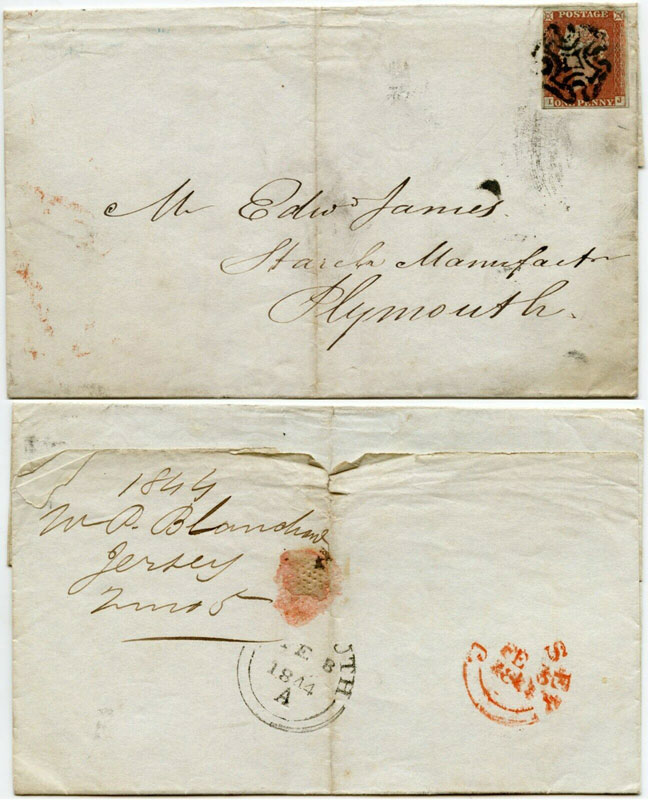 POSTAGE
ONE PENNY
I J
Mr Edwd James
Starch Manufactr
Plymouth.
1844
W P. Blanchard
Jersey
2 mo 5
UTH
FE 8
1844
A
FE
1844